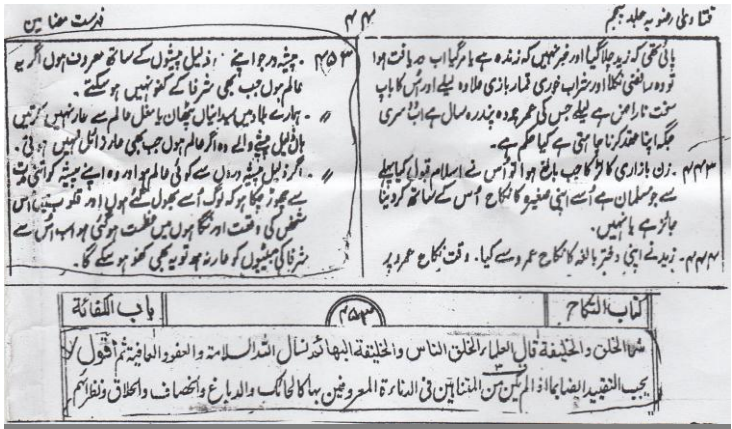 فتاویٰ رضویہ جلد پنجم
۴۴
فہرست مضامین
پائی تھی کہ زید چلا گیا اور خبر نہیں کہ زندہ ہے یا مر گیا اب دریافت ہوا
تو وہ رافضی نکلا اور شراب خوری قمار بازی علاوہ لیلے اور اُس کا باپ
سخت ناراض ہے لیلے جس کی عمر چودہ پندرہ سال ہے اب دوسری
جگہ اپنا عقد کرنا چاہتی ہے کیا حکم ہے۔
۴۴۳ ۔ زن بازاری کا لڑکا جب بالغ ہوا تو اُس نے اسلام قبول کیا پہلے
سے جو مسلمان ہے اُسے اپنی صغیرہ کا نکاح اُس کے ساتھ کر دینا
جائز ہے یا نہیں۔
۴۴۴ ۔ زید نے اپنی دختر بالغہ کا نکاح عمرو سے کیا۔ وقت نکاح عمرو پر
۴۵۳ ۔ پیشہ ور جو اپنے ذلیل پیشوں کے ساتھ معروف ہوں اگر یہ
عالم ہوں جب بھی شرفا کے کفو نہیں ہو سکتے۔
〃 ۔ ہمارے بلاد میں میدانیاں پٹھان یا مغل عالم سے عار نہیں کرتیں
ہاں ذلیل پیشے والے وہ اگر عالم ہوں جب بھی عار زائل نہیں ہوتی۔
〃 ۔ اگر ذلیل پیشہ وروں سے کوئی عالم ہو اور وہ اپنے پیشہ کو اتنی مدت
سے چھوڑ چکا ہو کہ لوگ اُسے بھول گئے ہوں اور قلوب میں اُس
شخص کی وقعت اور نگاہوں میں عظمت ہو گئی ہو اب اُس سے
شرفا کی بیٹیوں کو عار نہ ہو تو یہ بھی کفو ہو سکے گا۔
کتاب النکاح
۴۵۳
باب الکفائة
شر الخلق والخلیفة قال العلماء الخلق الناس والخلیقة البهائم نسأل اللہ السلامة والعفو والعافیة ثم اقول لا
یجب التقیید ایضا بما اذا لم یکن من المتناہین فی الدناءة المعروفین بہا کالحائك والدباغ والخصاف والحلاق ونظرائهم